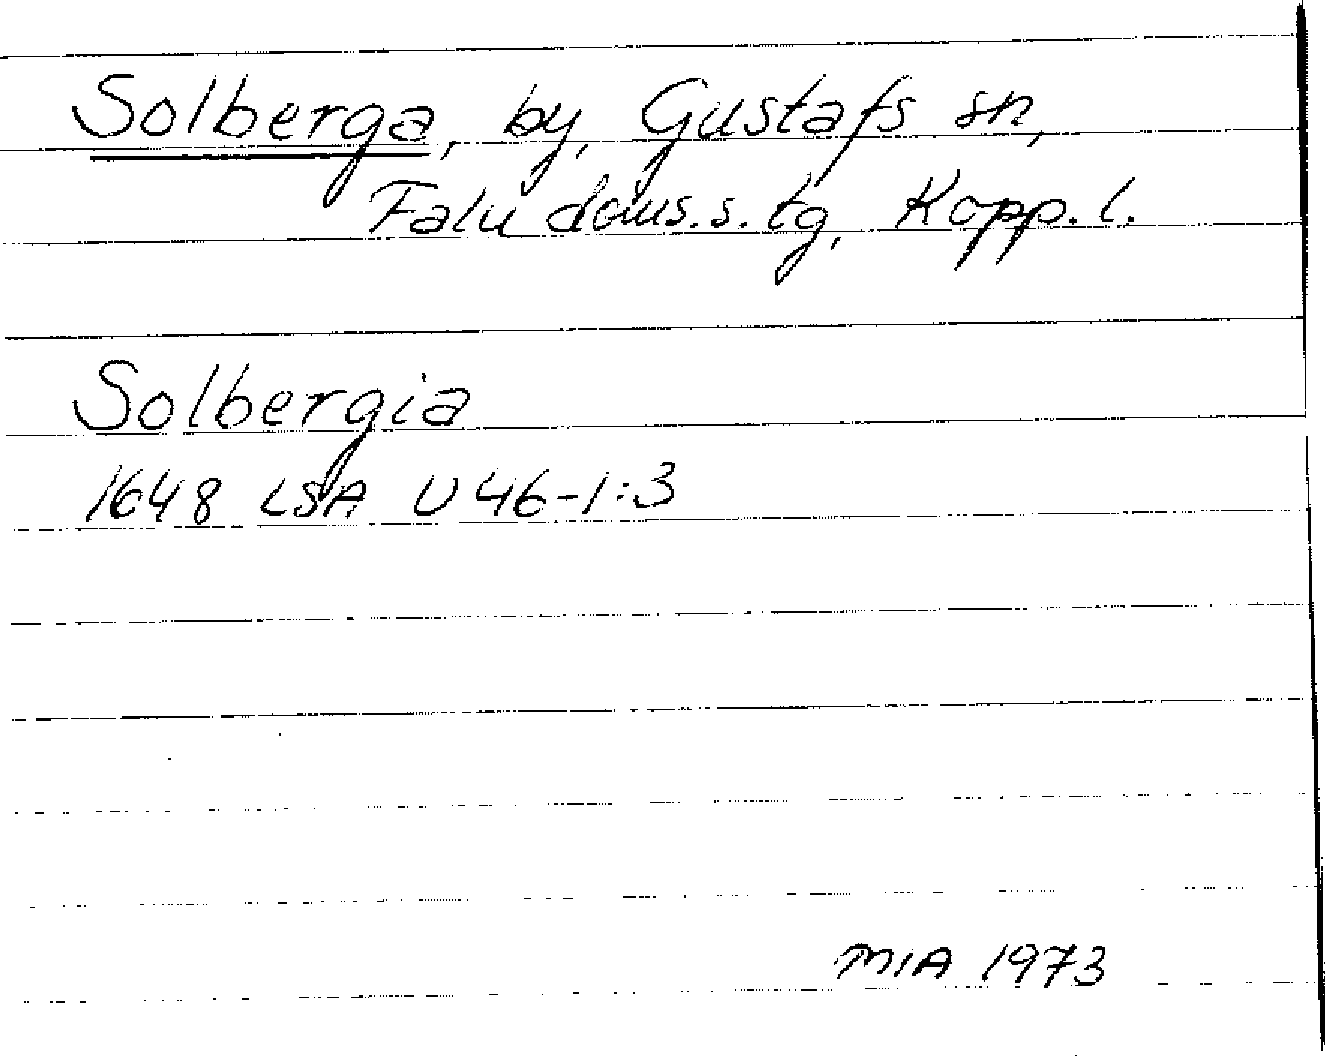 Solberga, by, Gustafs sn,
Falu doms.s. tg, Kopp. l.
Solbergia
1648 LSA U 46-1:3
MIA 1973